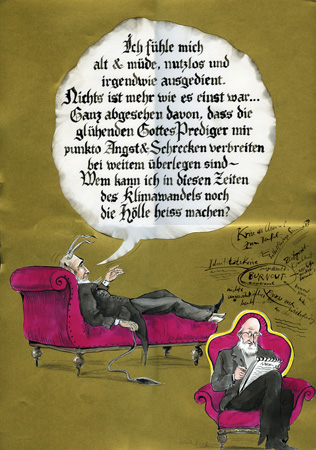 Ich fühle mich
alt & müde, nutzlos und
irgendwie ausgedient.
Nichts ist mehr wie es einst war...
Ganz abgesehen davon, dass die
glühenden GottesPrediger mir
punkto Angst&Schrecken verbreiten
bei weitem überlegen sind~
Wem kann ich in diesen Zeiten
des Klimawandels noch
die Hölle heiss machen?
BURNOUT